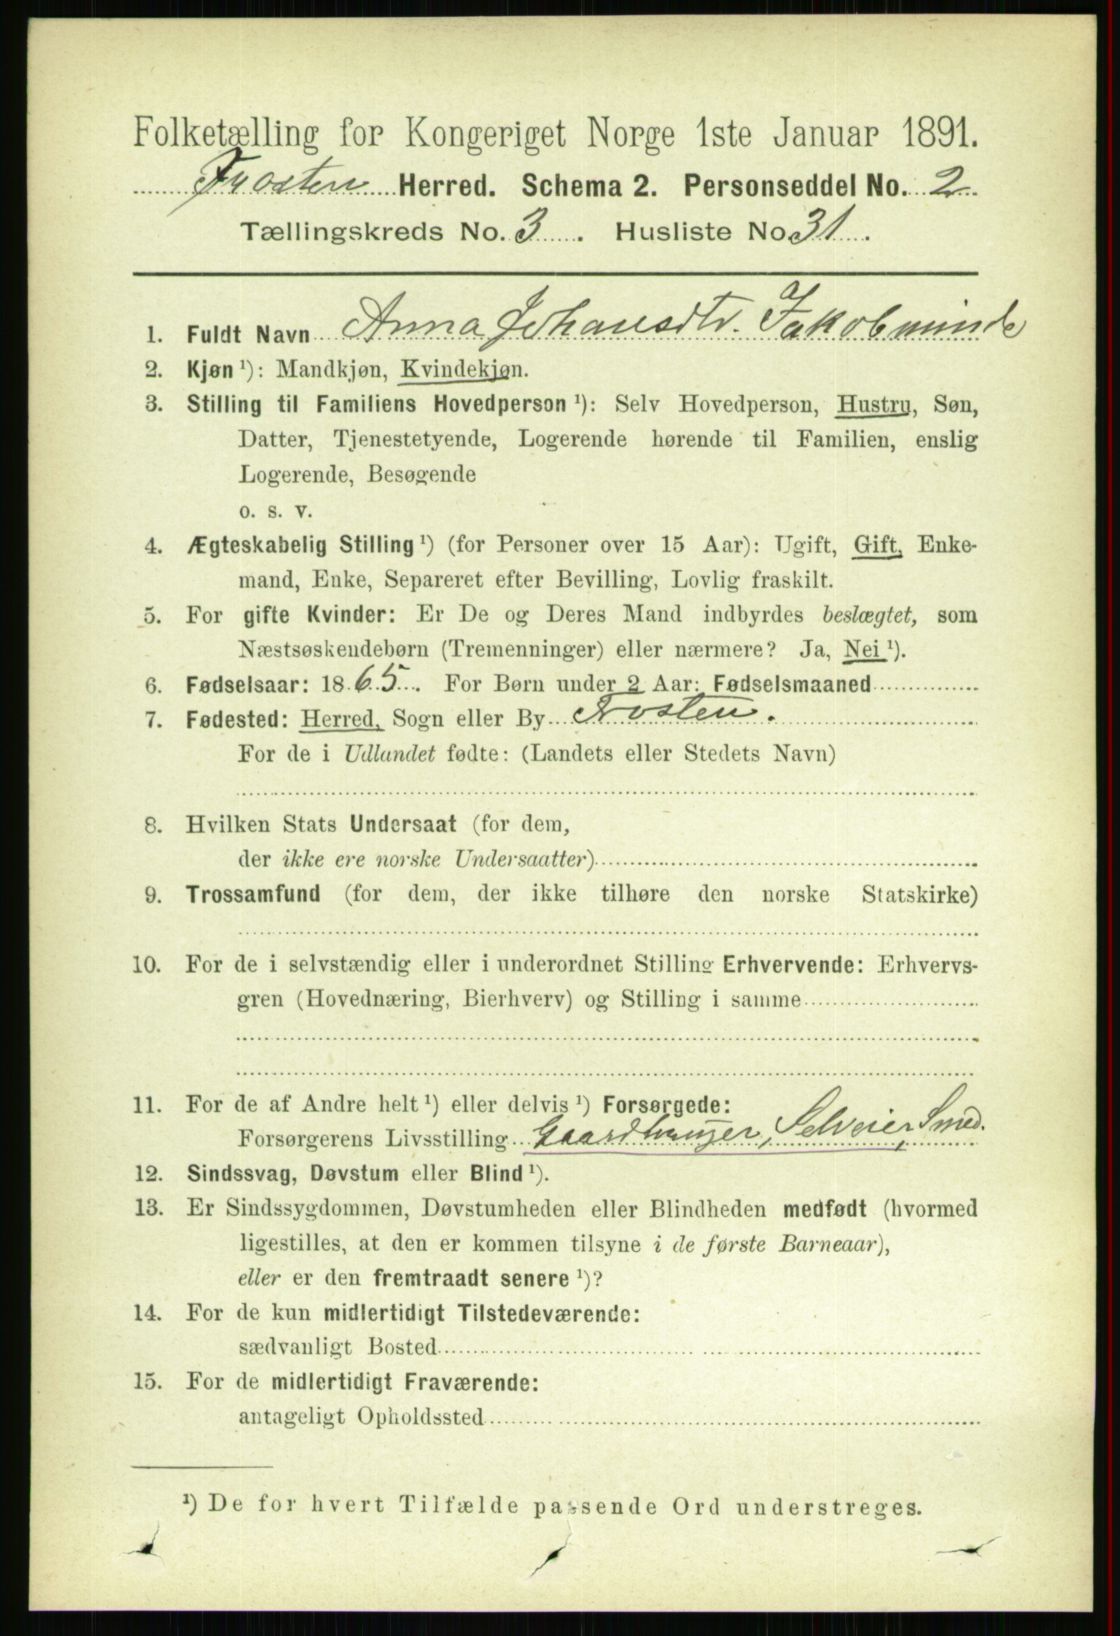 Folketælling for Kongeriget Norge 1ste Januar 1891.
Frosten Herred. Schema 2. Personseddel No. 2
Tællingskreds No. 3. Husliste No 31.
1. Fuldt Navn Anna Johansdtr. Jakobminde
2. Kjøn ¹): Mandkjøn, Kvindekjøn.
3. Stilling til Familiens Hovedperson ¹): Selv Hovedperson, Hustru, Søn,
Datter, Tjenestetyende, Logerende hørende til Familien, enslig
Logerende, Besøgende
o. s. v.
4. Ægteskabelig Stilling ¹) (for Personer over 15 Aar): Ugift, Gift, Enke-
mand, Enke, Separeret efter Bevilling, Lovlig fraskilt.
5. For gifte Kvinder: Er De og Deres Mand indbyrdes beslægtet, som
Næstsøskendebørn (Tremenninger) eller nærmere? Ja, Nei ¹).
6. Fødselsaar: 1865. For Børn under 2 Aar: Fødselsmaaned
7. Fødested: Herred, Sogn eller By Frosten.
For de i Udlandet fødte: (Landets eller Stedets Navn)
8. Hvilken Stats Undersaat (for dem,
der ikke ere norske Undersaatter)
9. Trossamfund (for dem, der ikke tilhøre den norske Statskirke)
10. For de i selvstændig eller i underordnet Stilling Erhvervende: Erhvervs-
gren (Hovednæring, Bierhverv) og Stilling i samme
11. For de af Andre helt ¹) eller delvis ¹) Forsørgede:
Forsørgerens Livsstilling Gaardbruger, Selveier, Smed.
12. Sindssvag, Døvstum eller Blind ¹).
13. Er Sindssygdommen, Døvstumheden eller Blindheden medfødt (hvormed
ligestilles, at den er kommen tilsyne i de første Barneaar),
eller er den fremtraadt senere ¹)?
14. For de kun midlertidigt Tilstedeværende:
sædvanligt Bosted
15. For de midlertidigt Fraværende:
antageligt Opholdssted
¹) De for hvert Tilfælde passende Ord understreges.